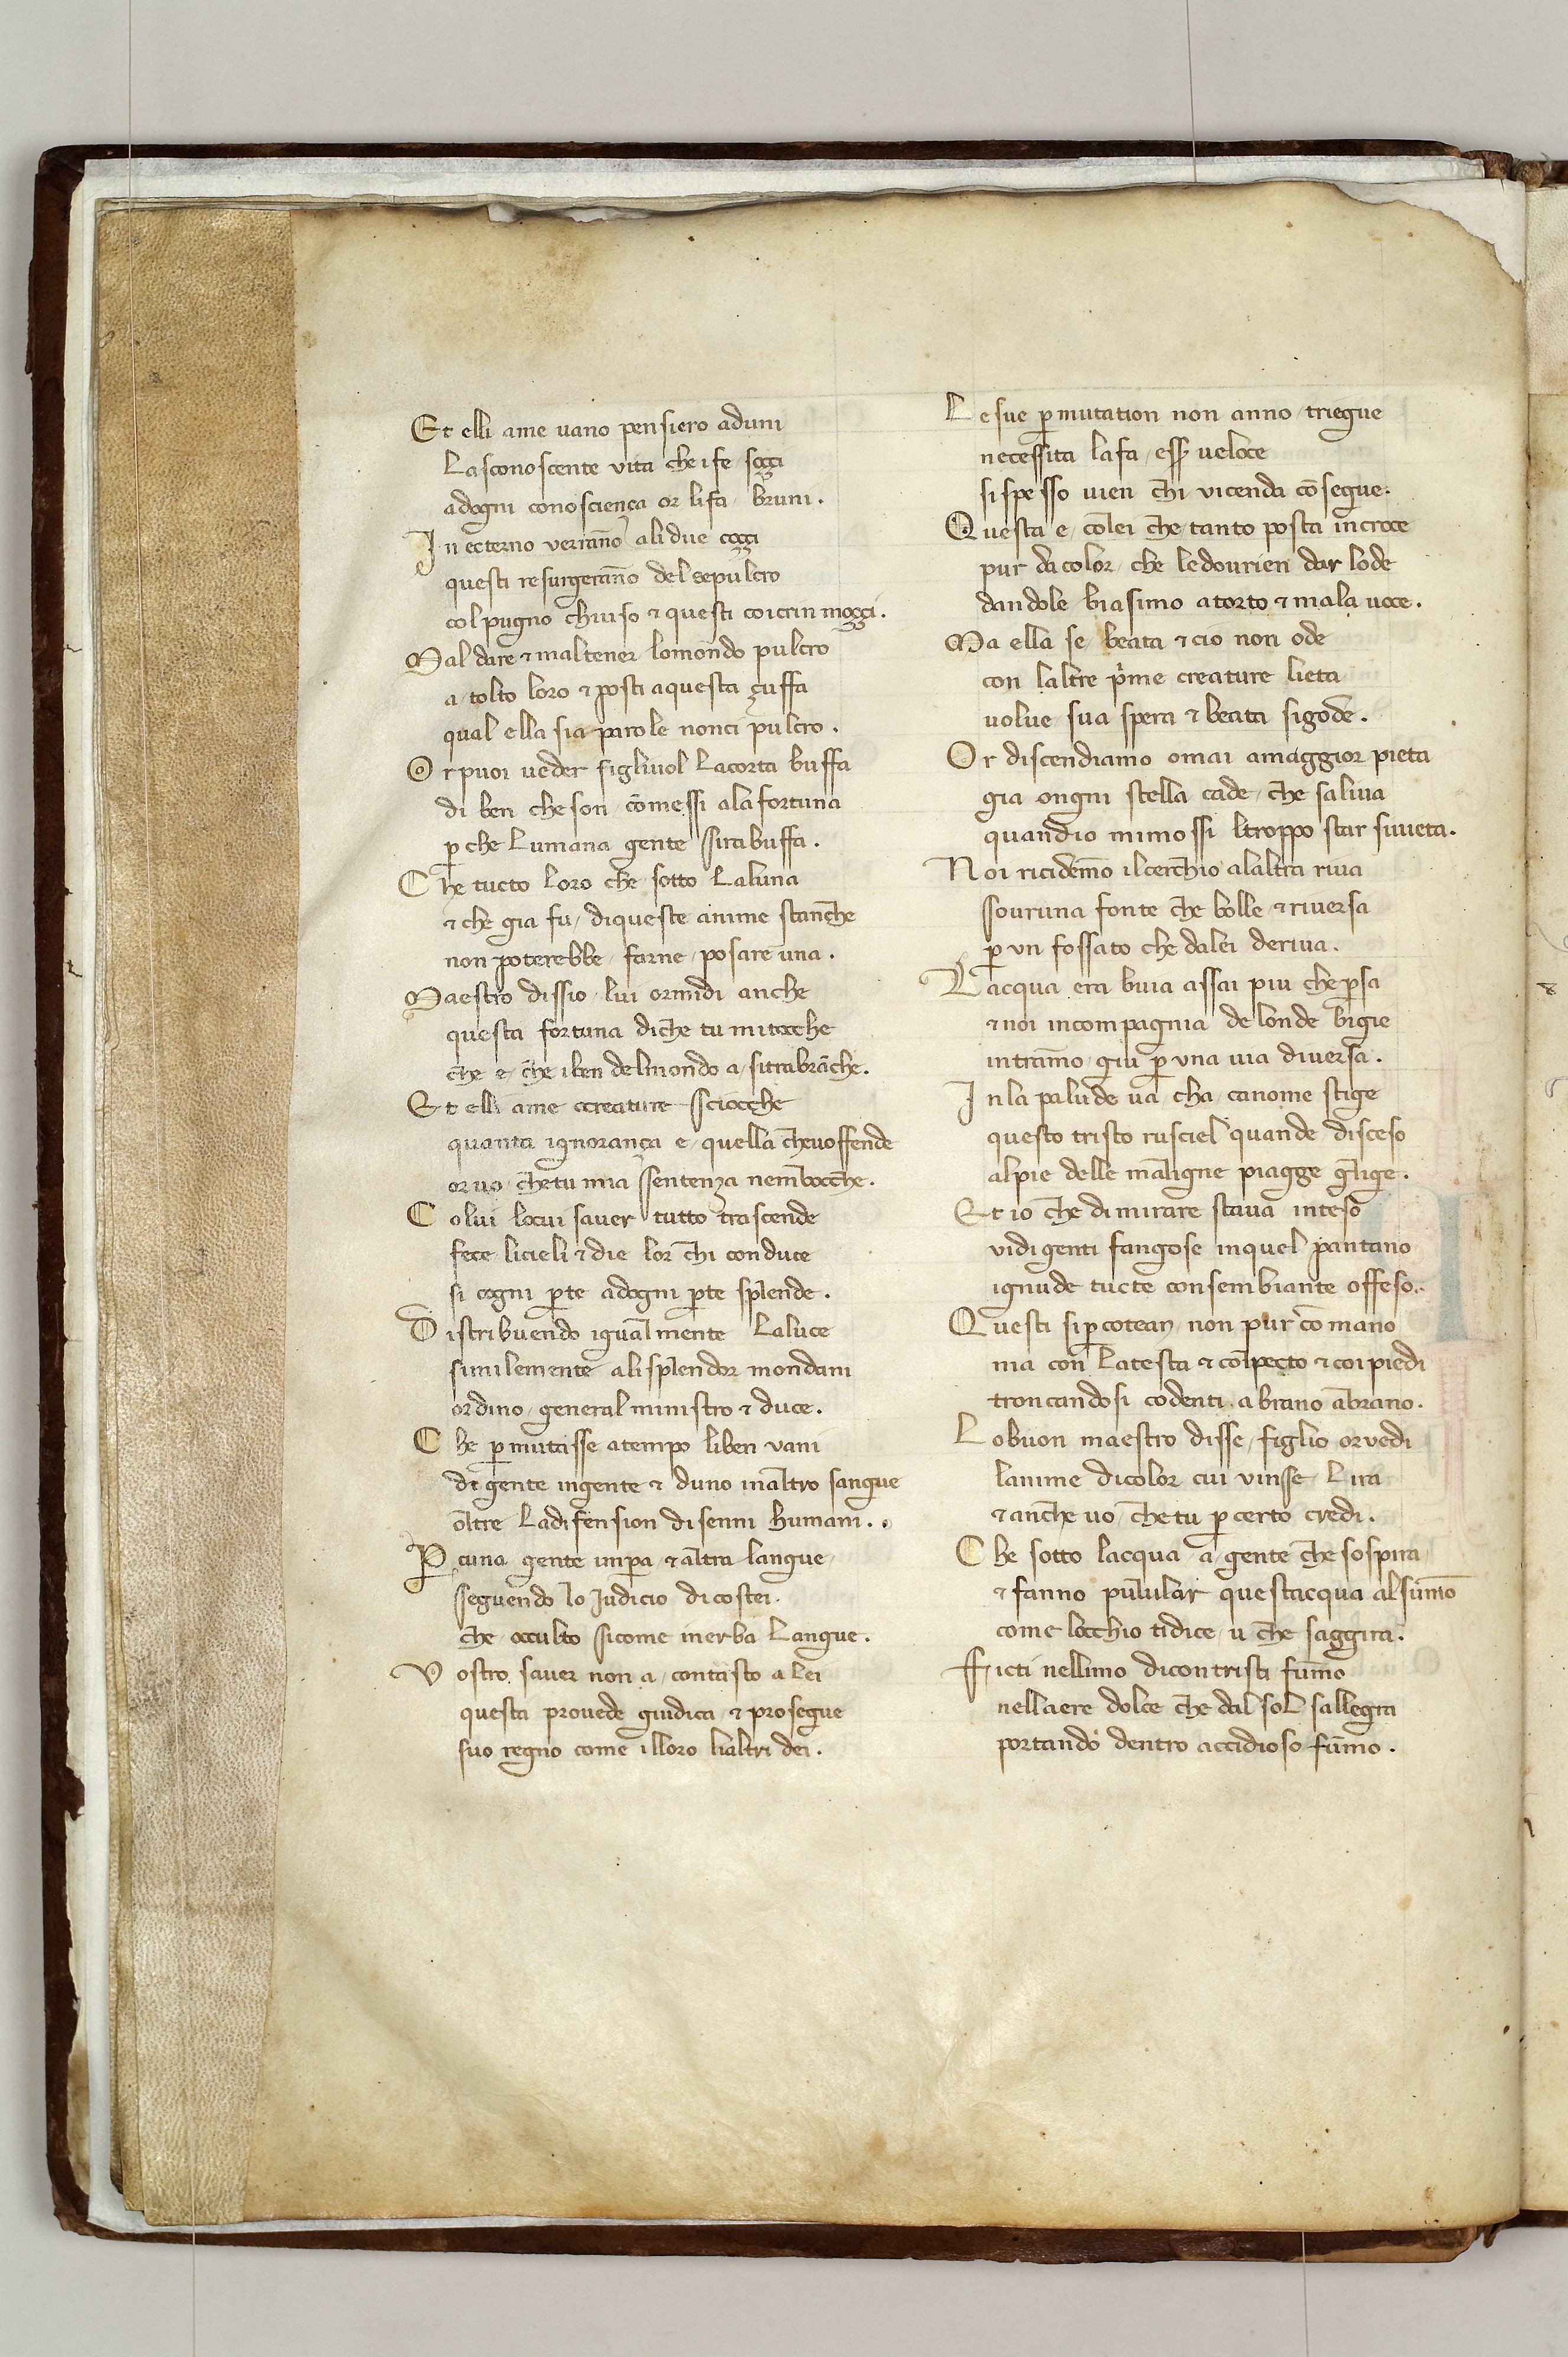 Et elli ame uano pensiero aduni
Lasconoscente vita che ife soççi
adogni conosciença or lifa bruni.
In ecterno verrāno ali due coççi
questi resurgerāno del sepulcro
col pugno chiuso & questi coi crin moççi.
Mal dare & mal tener lo mondo pulcro
a tolto loro & posti aquesta çuffa
qual ella sia parole nonci pulcro.
Or puoi ueder figliuol Lacorta buffa
di ben che son cōmessi ala fortuna
p̱ che Lumana gente si rabuffa.
Che tucto loro che sotto La luna
& che gia fu di queste anime stanche
non poterebbe farne posare una.
Maestro dissio lui or midi anche
questa fortuna diche tu mi tocche
che e che iben del mondo a sitrabrāche.
Et elli ame o creature sciocche
quanta ignorança e quella che uoffende
or uo che tu mia sentenza nembocche.
Colui locui sauer tutto trascende
fece licieli & die lor chi conduce
si cogni ꝑte adogni ꝑte splende.
Distribuendo igualmente La luce
similemente ali splendor mondani
ordino general ministro & duce.
Che ꝑmutasse atempo liben vani
di gente ingente & duno inaltro sangue
oltre La difension di senni humani.
Ꝑ cuna gente impa & altra langue
seguendo lo Judicio di costei.
che occulto sicome inerba Langue.
Vostro sauer non a contasto a lei
questa prouede giudica & prosegue
suo regno come illoro lialtri dei.
Le sue ꝑmutation non anno triegue
necessita lafa ess̄ ueloce
si spesso uien chi vicenda cōsegue.
Questa e colei che tanto posta in croce
pur da color che ledourien dar lode
dandole biasimo a torto & mala uoce.
Ma ella se beata & cio non ode
con laltre p̄me creature lieta
uolue sua spera & beata si gode.
Or discendiamo omai amaggior pieta
gia ongni stella cade che saliua
quandio mimossi Ltroppo star siuieta.
Noi ricidemo il cerchio alaltra riua
souruna fonte che bolle & riuersa
ꝑ vn fossato che da lei deriua.
Lacqua era buia assai piu che ꝑsa
& noi in compagnia de londe bigie
intramo giu ꝑ vna uia diuersa.
In la palude ua cha ca nome stige
questo tristo rusciel quande disceso
al pie delle maligne piagge ghige.
Et io che di mirare staua inteso
vidi genti fangose in quel pantano
ignude tucte con sembiante offeso.
Questi si ꝑcotean non pur cō mano
ma con La testa & col pecto & coi piedi
troncandosi codenti a brano abrano.
Lo buon maestro disse figlio or vedi
lanime di color cui vinse Lira
& anche uo che tu ꝑ certo credi.
Che sotto lacqua a gente che sospira
& fanno pullular questacqua al sūmo
come locchio ti dice u che saggira.
Ficti nel limo dicon tristi fūmo
nellaere dolce che dal sol sallegra
portando dentro accidioso fūmo.